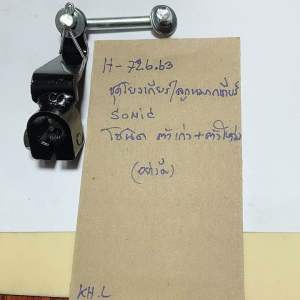 H-726.63
ชุดโยงเกียร์/ลูกหมากเกียร์
SONIC
โซนิค ตัวเก่า+ตัวใหม่
(อย่างดี)
KH.L